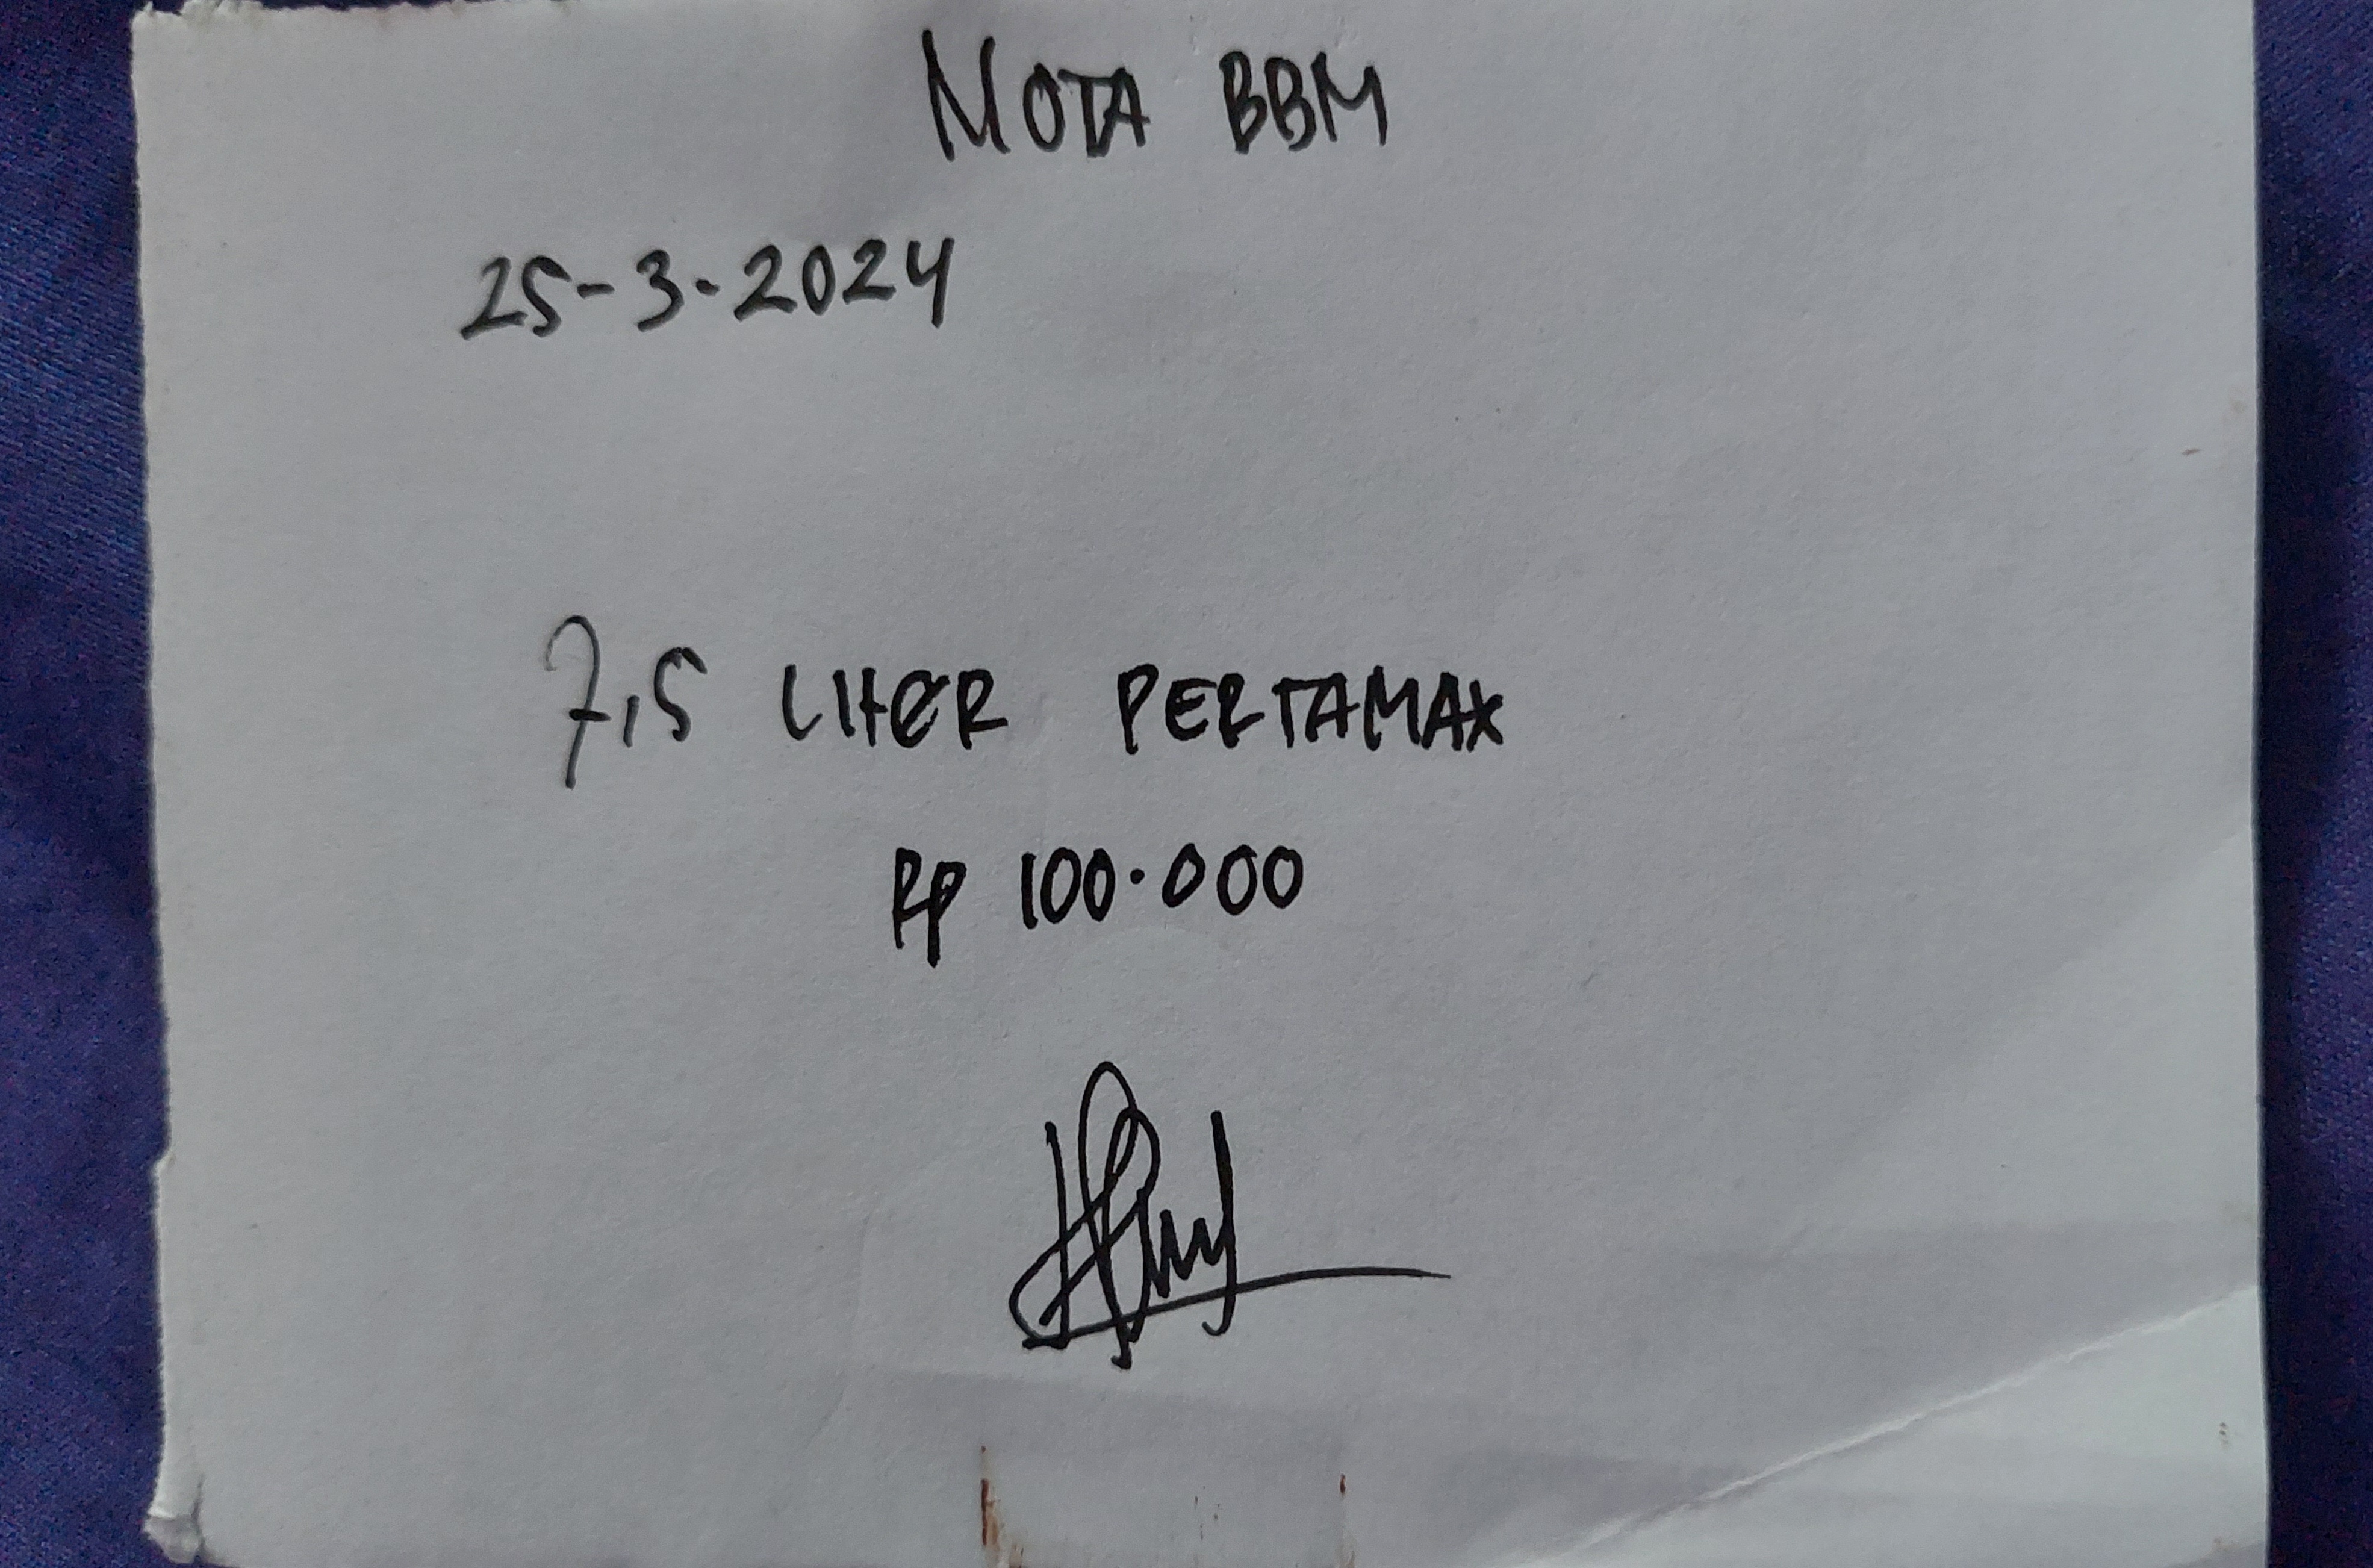 NOTA BBM
25-3-2024
7,5 LITER PERTAMAX
Rp 100.000